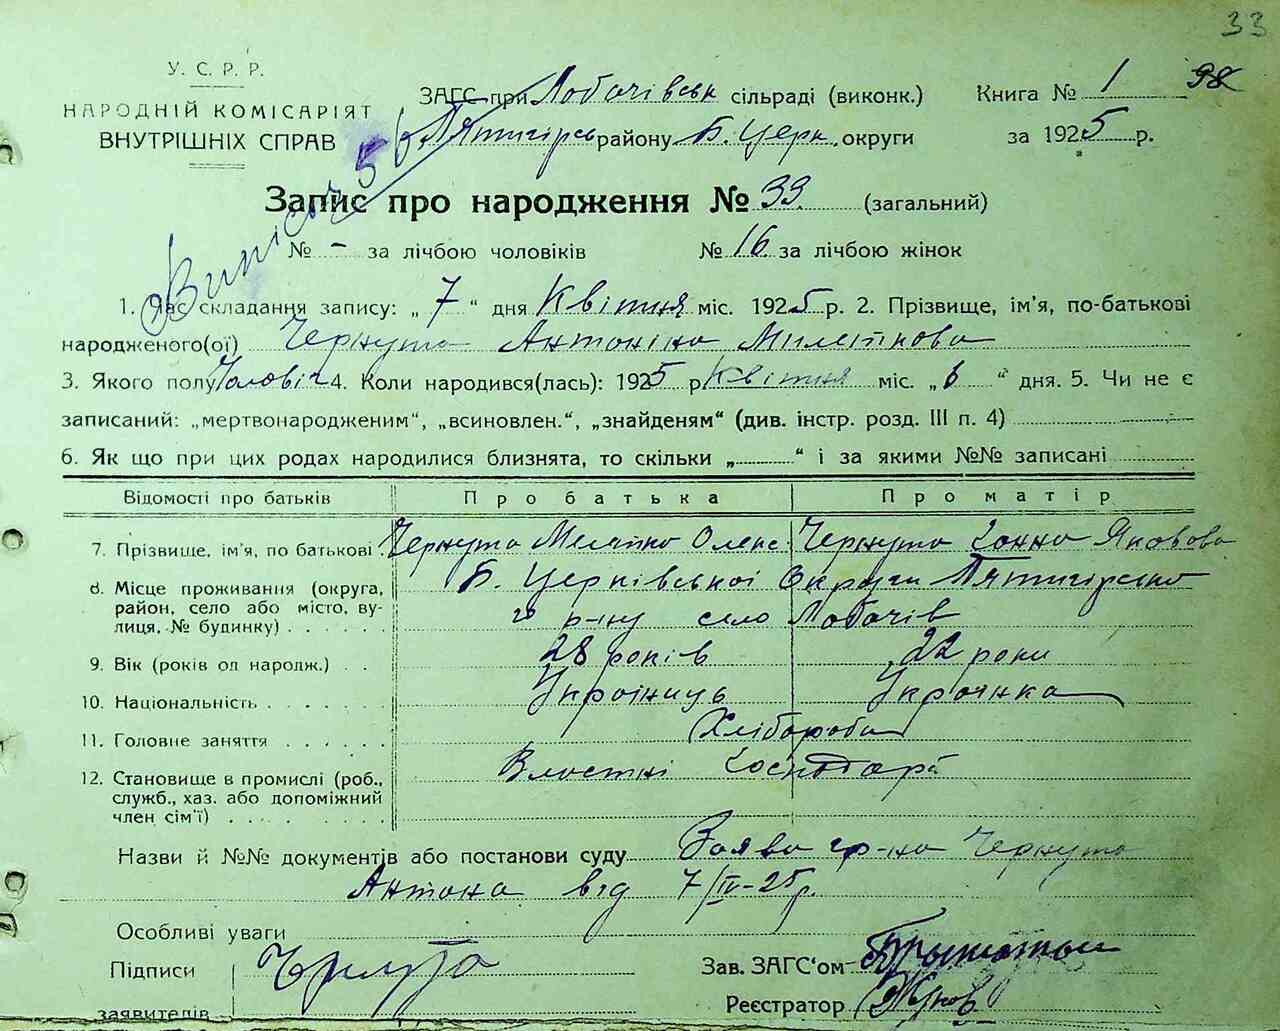 33
У. С. Р. Р.
НАРОДНІЙ КОМІСАРІЯТ
ВНУТРІШНІХ СПРАВ
ЗАГС при Лобачівськ сільраді (виконк.) Книга № 1 98
Пятигірсь району Б. Церк. округи за 1925 р.
Запис про народження № 33 (загальний)
№ - за лічбою чоловіків № 16 за лічбою жінок
1. Час складання запису: „7“ дня Квітня міс. 1925 р. 2. Прізвище, ім'я, по-батькові
народженого(ої) Чернута Антоніна Милетікова
3. Якого полу Чоловіч 4. Коли народився(лась): 1925 р Квітня міс. „6“ дня. 5. Чи не є
записаний: „мертвонародженим“, „всиновлен.“, „знайденям“ (див. інстр. розд. III п. 4)
6. Як що при цих родах народилися близнята, то скільки „ “ і за якими №№ записані
Відомості про батьків Про батька Про матір
7. Прізвище, ім'я, по батькові Чернута Олекс. Чернута Яковова
8. Місце проживання (округа, Б. Церківської Округи Пятигірсько
район, село або місто, ву- го р-ну село Лобачів
лиця, № будинку)
9. Вік (років од народж.) 28 років 22 роки
10. Національність Украінець Украінка
11. Головне заняття Хлібороби
12. Становище в промислі (роб., Властні Господарі
служб., хаз. або допоміжний
член сім'ї)
Назви й №№ документів або постанови суду Заява гр-на Чернута
Антона від 7/IV-25р.
Особливі уваги
Підписи Чернута Зав. ЗАГС'ом
заявителів Реєстратор